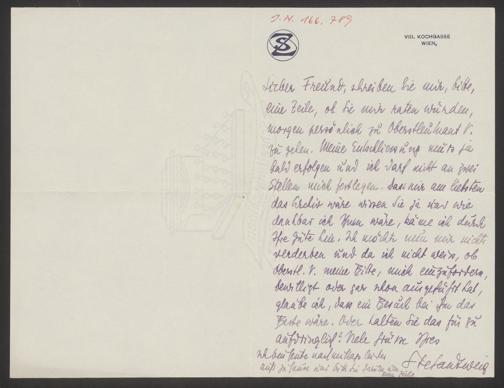 J. N. 166.789
SZ
VIII. KOCHGASSE
WIEN,
Lieber Freund, schreiben Sie mir, bitte,
eine Zeile, ob Sie mir raten würden,
morgen persönlich zu Oberstleutnant V.
zu gehen. Meine Entschliessung muss ja
bald erfolgen und ich darf nicht an zwei
Stellen mich festlegen. Dass mir am liebsten
das Archiv wäre wissen Sie ja und wie
dankbar ich Ihnen wäre, käme ich durch
Ihre Güte hin. Ich möchte nun mir nichts
verderben und da ich nicht weiss, ob
Oberstl. V. meine Bitte, mich einzufordern,
bewilligt oder gar schon ausgeführt hat,
glaube ich, dass ein Besuch bei ihm das
Beste wäre. Oder halten Sie das für zu
aufdringlich? Viele Grüsse Ihres
Stefan Zweig
Ich bin heute nachmittags leider